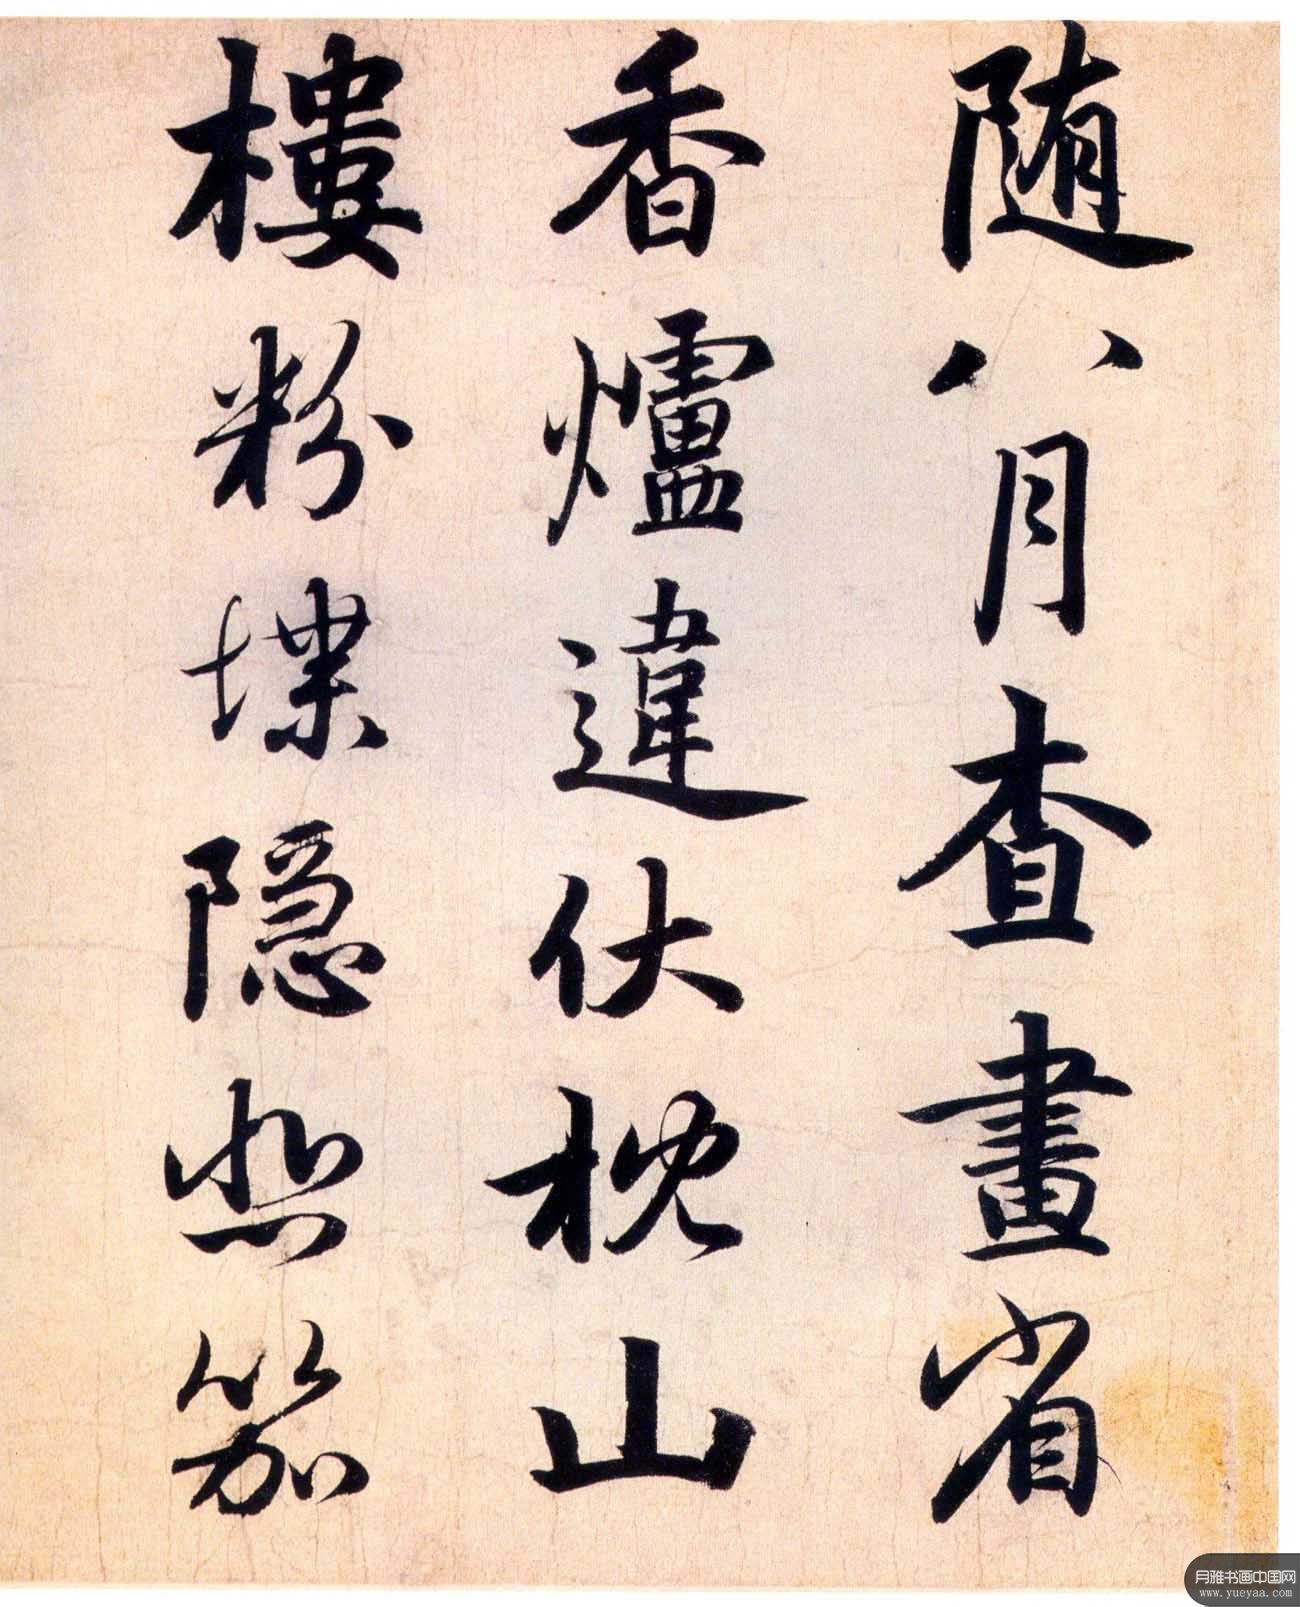 随八月查畫省
香爐違伏枕山
樓粉堞隱悲笳
月雅书画中国网
www.yueyaa.com